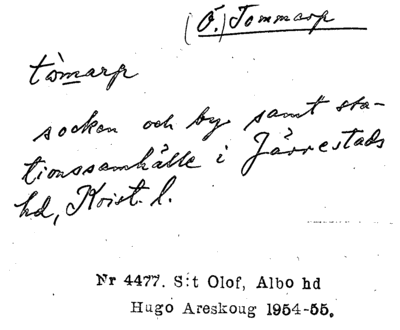 (Ö.) Tommarp
tòmarp
socken och by samt sta-
tionssamhälle i Järrestads
hd, Krist. l.
Nr 4477. S:t Olof, Albo hd
Hugo Areskoug 1954-55.